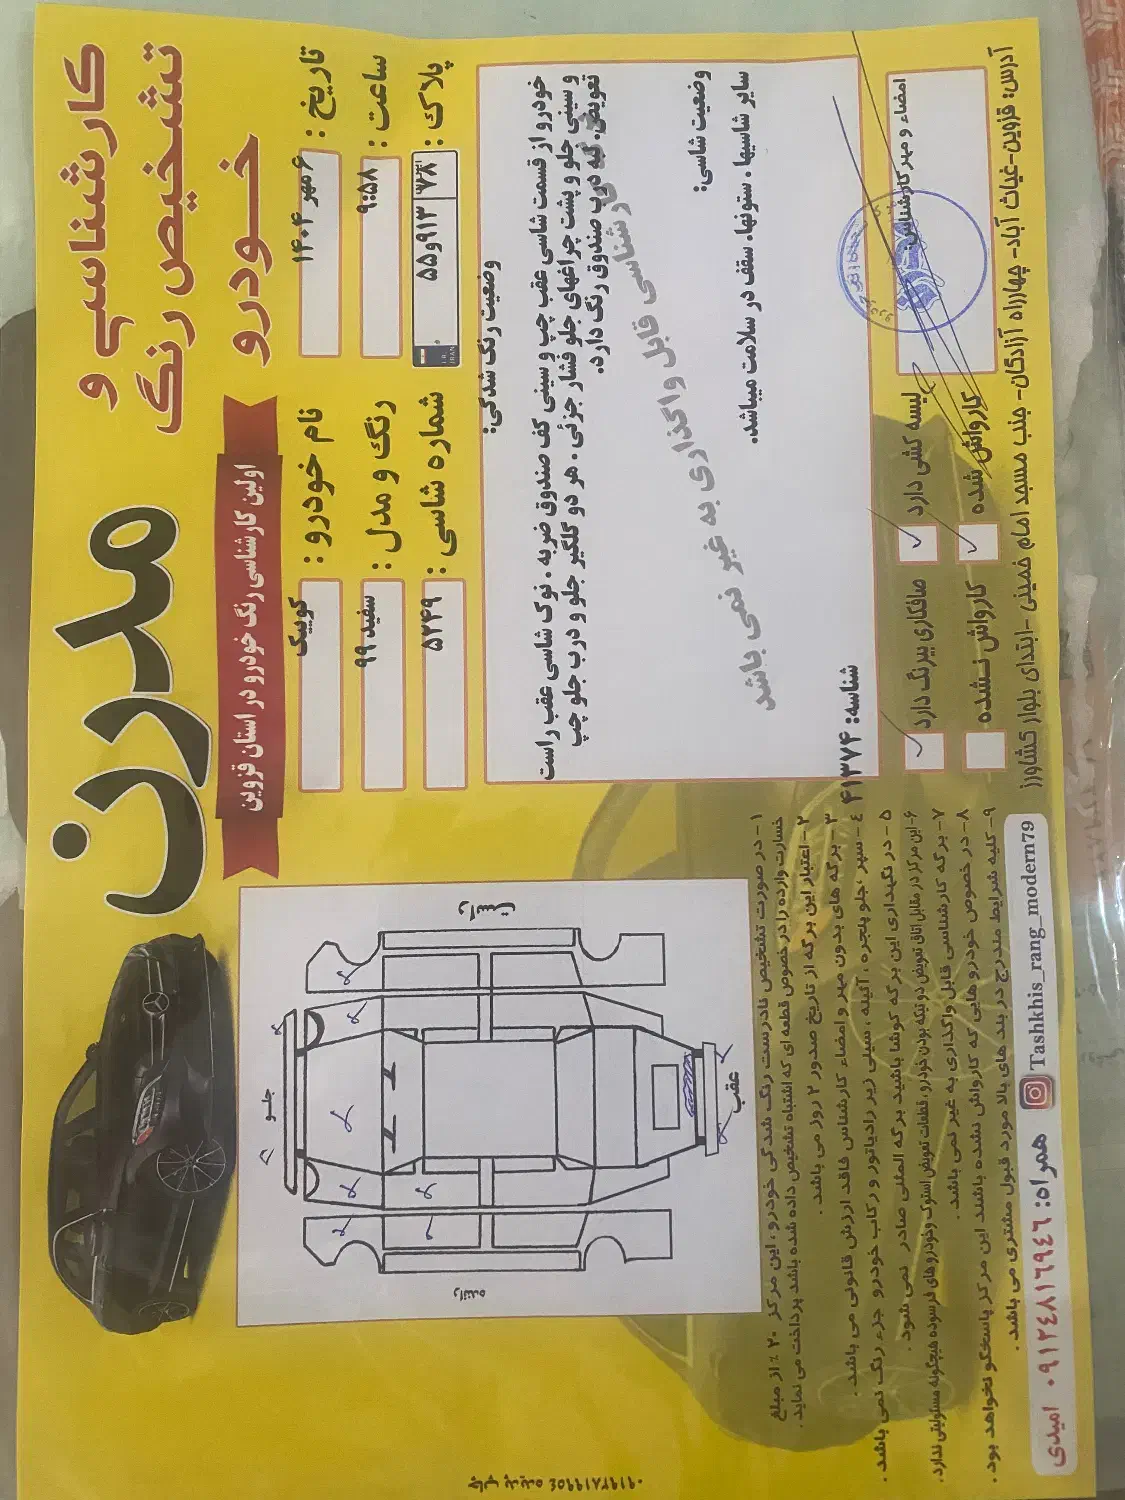 کارشناسی و
تشخیص رنگ
خودرو
مدرن
اولین کارشناسی رنگ خودرو در استان قزوین
تاریخ : ۶ مهر ۱۴۰۴
نام خودرو : کوییک
ساعت : ۹:۵۸
رنگ و مدل : سفید ۹۹
پلاک : ۵۵و۹۱۳ ایران ۷۸
I.R. IRAN
شماره شاسی : ۵۲۴۹
وضعیت رنگ شدگی:
خودرو از قسمت شاسی عقب چپ و سینی کف صندوق ضربه ، نوک شاسی عقب راست
و سینی جلو و پشت چراغهای جلو فشار جزئی ، هر دو گلگیر جلو و درب جلو چپ
تعویض، لبه درب صندوق رنگ دارد.
کارشناسی قابل واگذاری به غیر نمی باشد
وضعیت شاسی:
سایر شاسیها ، ستونها، سقف در سلامت میباشد.
شناسه: ۴۱۳۷۴
امضاء و مهر کارشناس:
لیسه کشی دارد
صافکاری بیرنگ دارد
کارواش شده
کارواش نـشده
آدرس: قزوین-غیاث آباد- چهارراه آزادگان- جنب مسجد امام خمینی -ابتدای بلوار کشاورز
راست
جلـو
عقب
راننده
۱- در صورت تشخیص نادرست رنگ شدگی خودرو ، این مرکز ۲۰٪ از مبلغ
خسارت وارده را در خصوص قطعه ای که اشتباه تشخیص داده شده باشد پرداخت می نماید .
۲- اعتبار این برگه از تاریخ صدور ۲ روز می باشد .
۳- برگه های بدون مهر و امضاء کارشناس فاقد ارزش قانونی می باشد .
٤- سپر ،جلو پنجره ، آئینه ، سینی زیر رادیاتور و رکاب خودرو جزء رنگ نمی باشد .
۵- در نگهداری این برگه کوشا باشید برگه المثنی صادر نمی شود .
۶-این مرکز در مقابل اتاق تعویض دو تیکه بودن خودرو، قطعات تعویض استوک و خودرو های فرسوده هیچگونه مسئولیتی ندارد.
۷- برگه کارشناسی قابل واگذاری به غیر نمی باشد .
۸- در خصوص خودرو هایی که کارواش نشده باشند این مرکز پاسخگو نخواهد بود .
۹- کلیه شرایط مندرج در بند های بالا مورد قبول مشتری می باشد .
Tashkhis_rang_modern79
همراه: ۰۹۱۲٤۸۱٦۹٤٦ امیدی
چاپ پدیده ۰۹۱۹۲۸۱۹۹۵٤